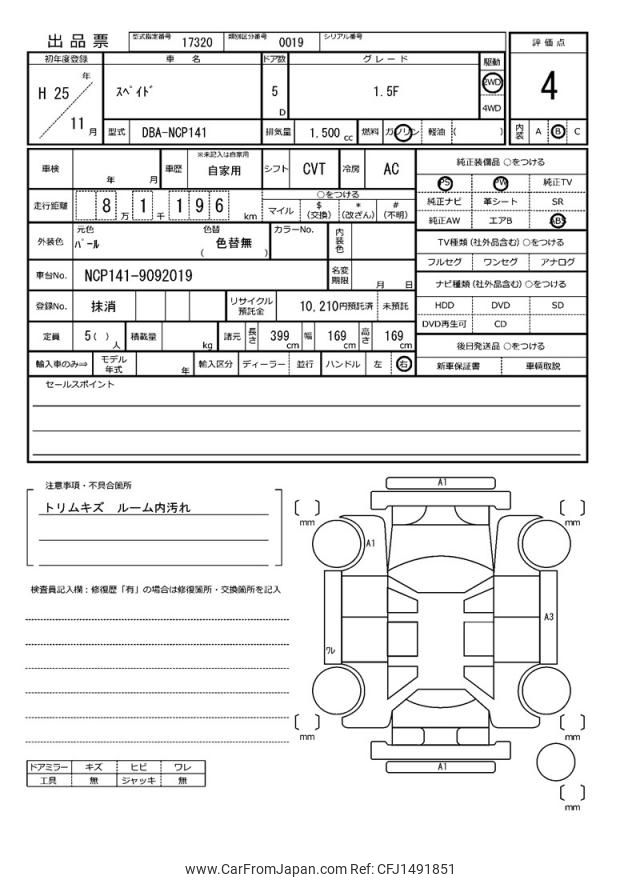 出品票 型式指定番号 17320 類別区分番号 0019 シリアル番号
評価点
4
初年度登録 車名 ドア数 グレード 駆動
H 25 年 11 月
スペイド 5 D 1.5F 2WD
4WD
型式 DBA-NCP141 排気量 1.500 cc 燃料 ガソリン 軽油 ( )
内装 A B C
車検 年 月 車歴 ※未記入は自家用 自家用 シフト CVT 冷房 AC
走行距離 8 万 1 千 1 9 6 km
○をつける
マイル $(交換) *(改ざん) #(不明)
外装色 元色 パール 色替 色替無 ( )
カラーNo. 内装色
車台No. NCP141-9092019 名変期限 月 日
登録No. 抹消 リサイクル預託金 10,210円預託済 未預託
定員 5( ) 人 積載量 kg 諸元 長さ 399 cm 幅 169 cm 高さ 169 cm
輸入車のみ⇒ モデル年式 年 輸入区分 ディーラー 並行 ハンドル 左 右
純正装備品 ○をつける
PS PW 純正TV
純正ナビ 革シート SR
純正AW エアB ABS
TV種類(社外品含む)○をつける
フルセグ ワンセグ アナログ
ナビ種類(社外品含む)○をつける
HDD DVD SD
DVD再生可 CD
後日発送品 ○をつける
新車保証書 車輌取説
セールスポイント
注意事項・不具合箇所
トリムキズ ルーム内汚れ
検査員記入欄：修復歴「有」の場合は修復箇所・交換箇所を記入
ドアミラー キズ ヒビ ワレ
工具 無 ジャッキ 無
A1
mm
mm
A1
A3
ワレ
mm
mm
A1
mm
www.CarFromJapan.com Ref: CFJ1491851